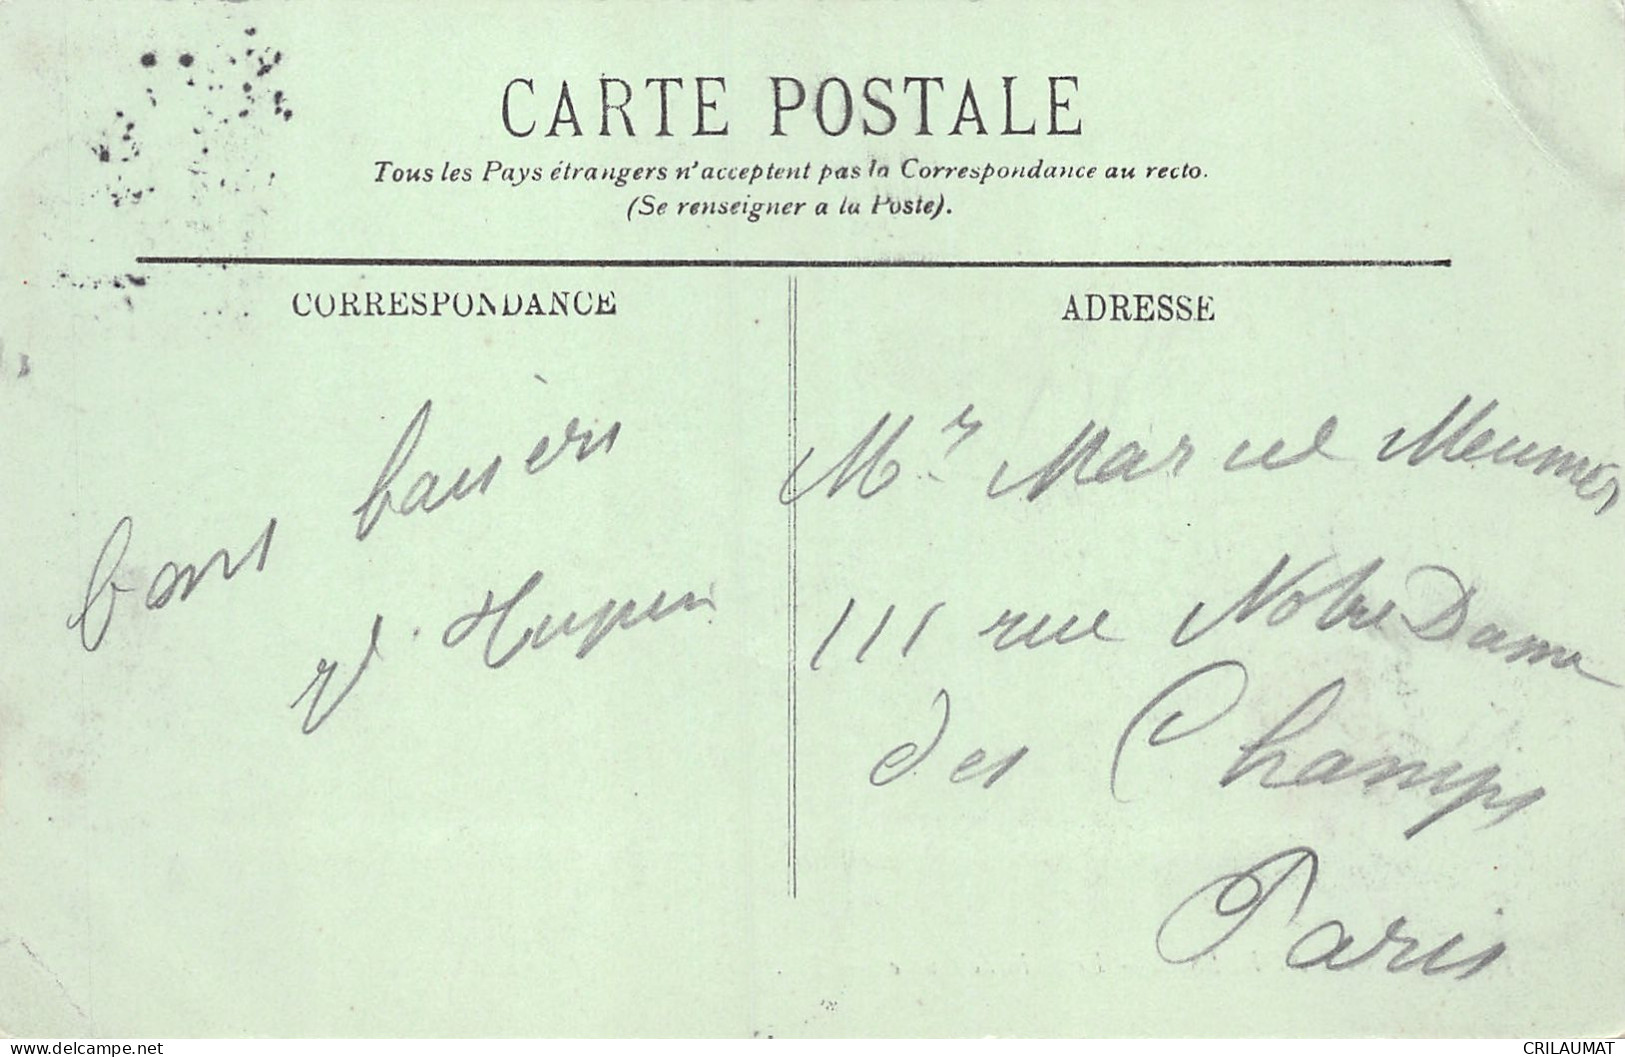 CARTE POSTALE
Tous les Pays étrangers n'acceptent pas la Correspondance au recto.
(Se renseigner a la Poste).
CORRESPONDANCE
ADRESSE
bons baisers
Mr Marcel Meunier
111 rue Notre Dame
des Champs
Paris
www.delcampe.net
CRILAUMAT